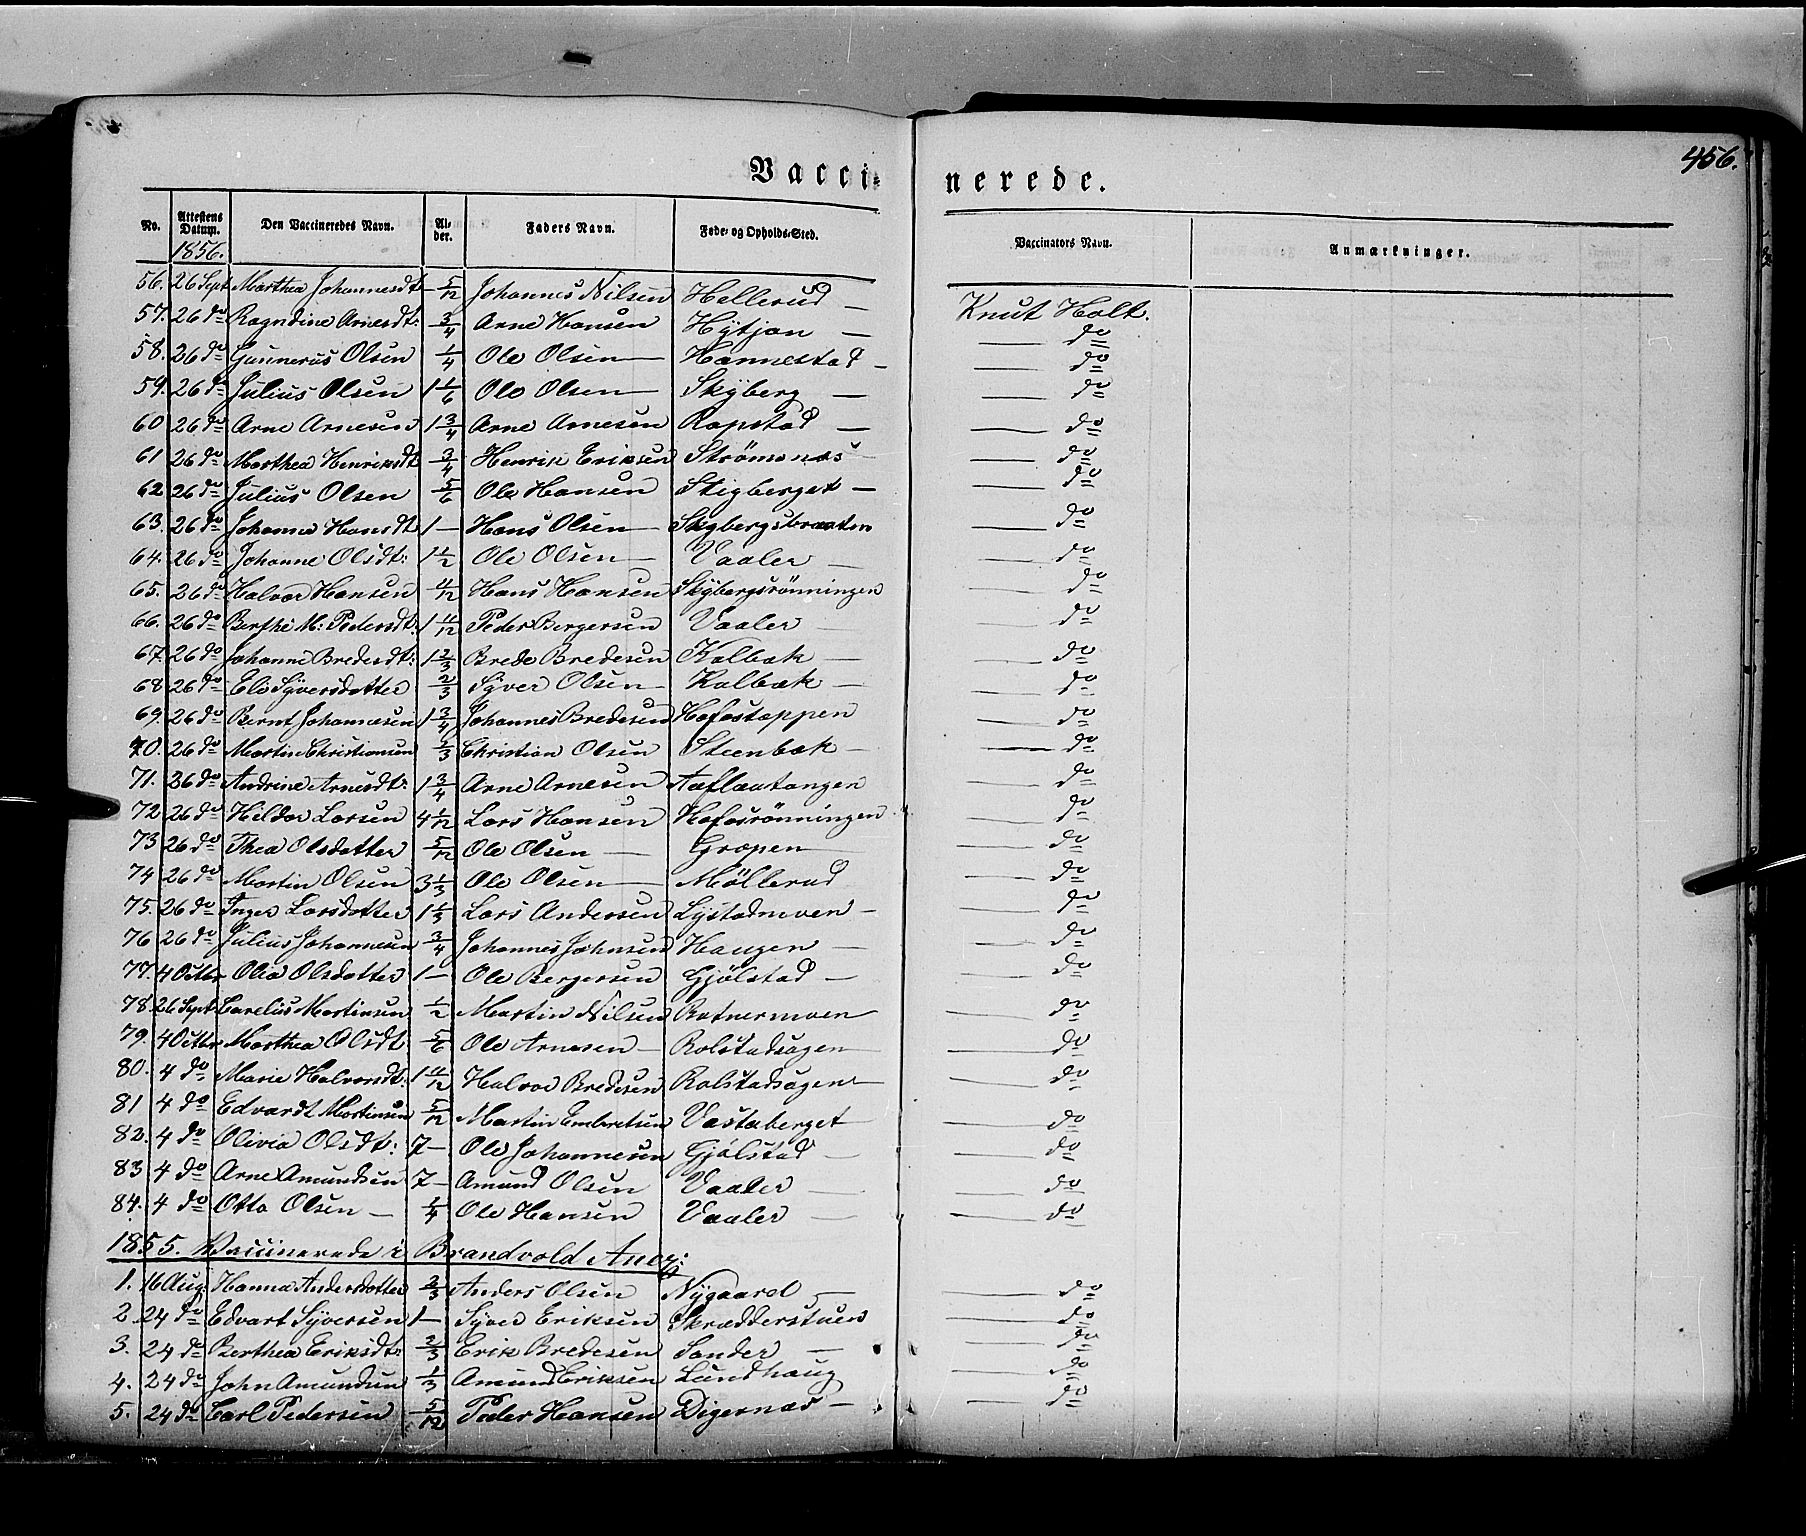 456.
Vacci- nerede.
No. Attestens Datum. Den Vaccineredes Navn. Al- der. Faders Navn. Føde- og Opholds-Sted. Vaccinators Navn. Anmærkninger.
1856.
56. 26 Sept Marthea Johannesdt: 5/12 Johannes Nilsen Hellerud — Knut Holt.
57. 26 do Ragndine Arnesdt: 3/4 Arne Hansen Hytjan — do
58. 26 do Gunnerus Olsen 1/4 Ole Olsen — Hannestad — do
59. 26 do Julius Olsen 1 1/6 Ole Olsen — Skyberg — do
60 26 do Arne Arnesen 1 3/4 Arne Arnesen Rapstad — do
61 26 do Marthea Henriksdt 3/4 Henrik Eriksen Strømsnæs — do
62 26 do Julius Olsen 5/6 Ole Hansen Stigberget — do
63. 26 do Johanne Hansdt 1 — Hans Olsen — Skybergsbraaten — do
64. 26 do Johanne Olsdt: 1 1/2 Ole Olsen — Vaaler — do
65. 26 do Halvor Hansen 4/12 Hans Hansen Skybergsrönningen — do
66. 26 do Berthe M: Pedersdt: 1 4/12 Peder Bergersen Vaaler — do
67. 26 do Johanne Bredesdt: 1 2/3 Brede Bredesen Kolbæk — do
68 26 do Eli Syversdatter 2/3 Syver Olsen — Kolbæk — do
69. 26 do Bernt Johannesen 1 3/4 Johannes Bredesen Hofostappen — do
70. 26 do Martin Christiansen 1/3 Christian Olsen Steenbæk — do
71. 26 do Andrine Arnesdt: 1 3/4 Arne Arnesen — do
72 26 do Hildor Larsen 4 1/12 Lars Hansen Hofosrönningen — do
73 26 do Thea Olsdatter 5/12 Ole Olsen — Gropen — do
74 26 do Martin Olsen 3 1/3 Ole Olsen — Möllerud — do
75. 26 do Inger Larsdatter 1 1/3 Lars Andersen Lystadmoen — do
76 26 do Julius Johannesen 3/4 Johannes Johnsen Haugen — do
77. 4 Octbr Olia Olsdatter 1 — Ole Bergersen Gjölstad — do
78. 26 Sept Carelius Martinsen 1/2 Martin Nilsen Rotnermoen — do
79. 4 Octbr Marthea Olsdt 5/6 Ole Arnesen — Rolstadsagen — do
80. 4 do Marie Halvorsdt: 1 4/12 Halvor Bredesen Rolstadsagen — do
81 4 do Edvardt Martinsen 5/12 Martin Embretsen Vastaberget — do
82. 4 do Olivia Olsdt: 7 — Ole Johannesen Gjölstad — do
83 4 do Arne Amundsen 7 — Amund Olsen Vaaler — do
84. 4 do Otto Olsen — 1/4 Ole Hansen Vaaler — do
1855. Vaccinerede i Brandvold Anex:
1. 16 Aug: Hanna Andersdatter 2/3 Anders Olsen Nygaard — do
2 24 do Edvart Syversen 1 — Syver Eriksen Skrædderstuen — do
3. 24 do Berthea Eriksdt: 2/3 Erik Bredesen Sander — do
4. 24 do John Amundsen 1/3 Amund Eriksen Lundhaug — do
5. 24 do Carl Pedersen 5/12 Peder Hansen Digernæs — do